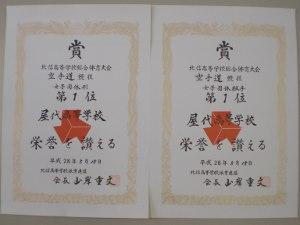 賞
北信高等学校総合体育大会
空手道 競技
女子団体形
第1位
屋代高等学校
栄誉を讃える
平成28年5月15日
北信高等学校体育連盟
会長
賞
北信高等学校総合体育大会
空手道 競技
女子団体組手
第1位
屋代高等学校
栄誉を讃える
平成28年5月15日
北信高等学校体育連盟
会長